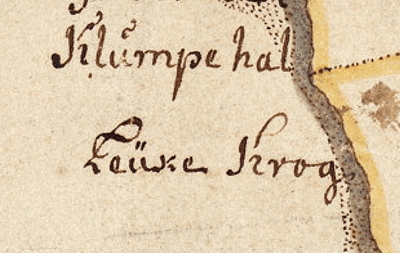 Klumpe hal
Leüke Krog